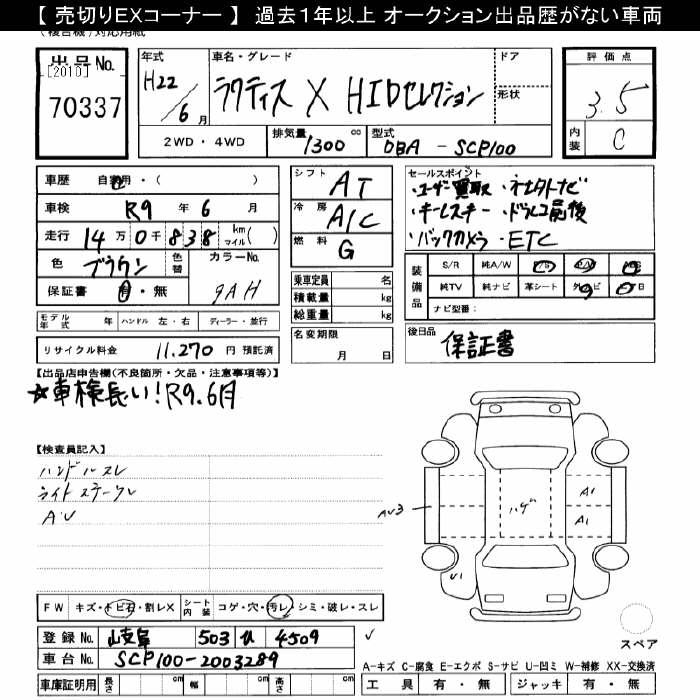 【 売切りEXコーナー 】 過去1年以上 オークション出品歴がない車両
出品No.
[2010]
70337
年式
H22
/6 月
車名・グレード
ラクティス X HIDセレクション
ドア
形状
評価点
3.5
内装 C
2WD・4WD
排気量 1300 cc
型式 DBA - SCP100
車歴 自家用・( )
車検 R9 年 6 月
走行 14 万 0 千 838 km マイル( )
色 ブラウン
色替
カラーNo.
9AH
保証書 有・無
シフト AT
冷房 A/C
燃料 G
乗車定員 名
積載量 kg
総重量 kg
セールスポイント
・ユーザー買取 ・社外ナビ
・キーレスキー ・ドラレコ前後
・バックカメラ ・ETC
装備品
S/R 純A/W
純TV 純ナビ 革シート
ナビ型番:
モデル年式 年 ハンドル 左・右 ディーラー・並行
リサイクル料金 11,270 円 預託済
名変期限
月 日
後日品
保証書
【出品店申告欄(不良箇所・欠品・注意事項等)】
☆車検長い!R9.6月
【検査員記入】
ハンドルスレ
ライトステークレ
A・U
AU3
ハゲ
A1
A1
U1
FW キズ・トビ石・割レX
シート内装 コゲ・穴・汚レ・シミ・破レ・スレ
登録No. 岐阜 503 4509
車台No. SCP100-2003289
スペア
A-キズ C-腐食 E-エクボ S-サビ U-凹ミ W-補修 XX-交換済
車庫証明用 長さ cm 幅 cm 高さ cm
工具 有・無 ジャッキ 有・無